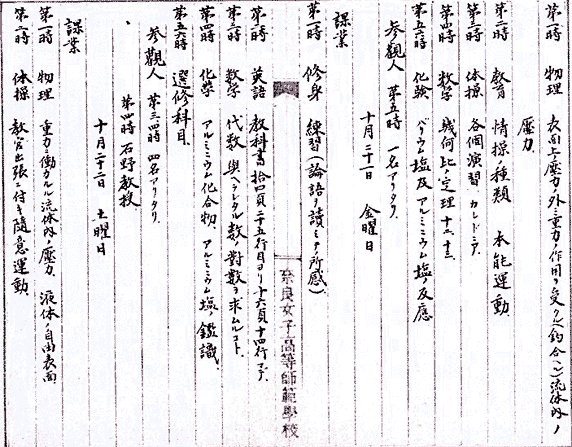 第一時 物理 表面上ノ壓力ノ外ニ重力ノ作用ヲ受クル(釣合ヘル)流体内ノ
壓力
第二時 教育 情操ノ種類 本能運動
第三時 体操 各個演習、カレドニア
第四時 数学 幾何比ノ定理十二、十三
第五六時 化験 バリウム塩及アルミニウム塩ノ反應
参觀人 第五時 一名アリタリ
十月二十一日 金曜日
課業
第一時 修身 練習(論語ヲ讀ミテノ所感)
第二時 英語 教科書拾四頁二十五行目ヨリ十六頁十四行マデ
第三時 数学 代数 與ヘラレタル数ノ對数ヲ求ムルコト
第四時 化學 アルミニウム化合物、アルミニウム塩ノ鑑識
第五六時 選修科目
参觀人 第三、四時 四名アリタリ
第四時 石野教授
十月二十二日 土曜日
課業
第一時 物理 重力ノ働カルル流体内ノ壓力 液体ノ自由表面
第二時 体操 教官出張ニ付キ隨意運動
奈良女子高等師範學校